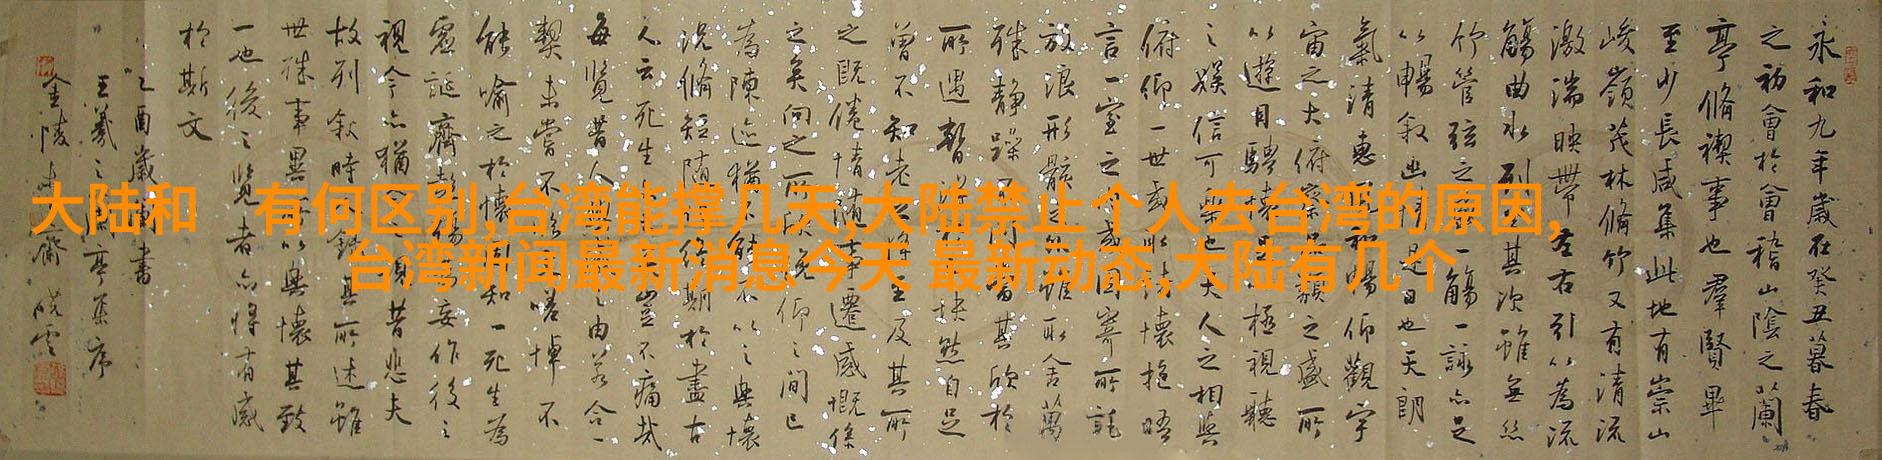 大陆和 有何区别,台湾能撑几天,大陆禁止个人去台湾的原因,
台湾新闻最新消息今天 最新动态,大陆有几个
永和九年歲在癸丑暮春
之初會於會稽山陰之蘭
亭脩禊事也羣賢畢
至少長咸集此地有崇山
峻嶺茂林脩竹又有清流
激湍映帶左右引以為流
觴曲水列坐其次雖無絲
竹管弦之盛一觴一詠亦足
以暢敘幽情是日也天朗
氣清惠風和暢仰觀宇
宙之大俯察品類之盛所
以遊目騁懷足以極視聽
之娛信可樂也夫人之相與
俯仰一世或取諸懷抱晤
言一室之內或因寄所託
放浪形骸之外雖取舍萬
殊靜躁不同當其欣於
所遇暫得於己快然自足
曾不知老之將至及其所
之既倦情隨事遷感慨係
之矣向之所欣俛仰之間已
為陳迹猶不能不以之興懷
況脩短隨化終期於盡古
人云死生亦大矣豈不痛哉
每覽昔人興感之由若合一
契未嘗不臨文嗟悼不
能喻之於懷固知一死生為
虛誕齊彭殤為妄作後之
視今亦猶今之視昔悲夫
故列敘時人錄其所述雖
世殊事異所以興懷其致
一也後之覽者亦將有感
於斯文
乙酉歲書
王羲之蘭亭集序
金陵齋